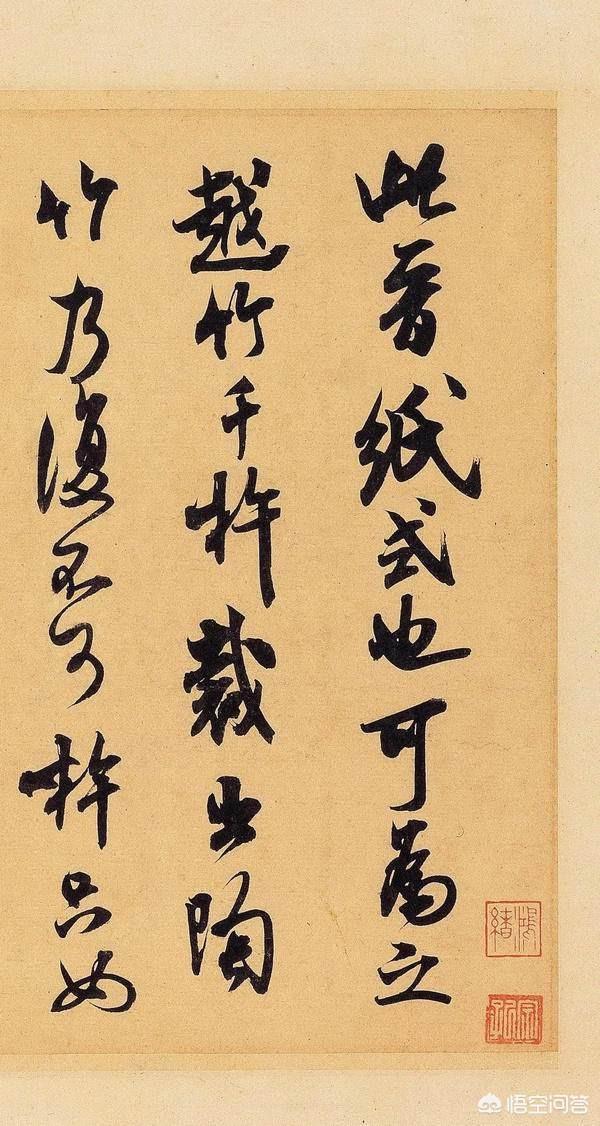 此晉紙式也可為之
越竹千杵裁出陶
竹乃復不可杵只如
鴻緒
悟空问答